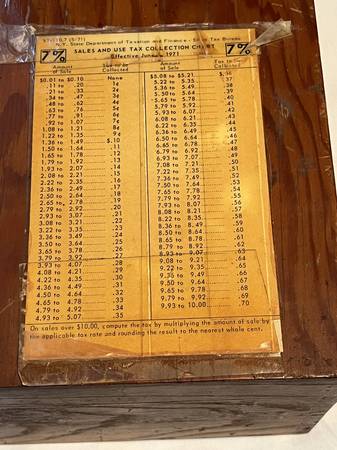 ST-110.7 (5/71)
N.Y. State Department of Taxation and Finance - Sales Tax Bureau
7% SALES AND USE TAX COLLECTION CHART 7%
Effective June 1, 1971
Amount of Sale
Tax to be Collected
$0.01 to $0.10 None
.11 to .20 1¢
.21 to .33 2¢
.34 to .47 3¢
.48 to .62 4¢
.63 to .76 5¢
.77 to .91 6¢
.92 to 1.07 7¢
1.08 to 1.21 8¢
1.22 to 1.35 9¢
1.36 to 1.49 $.10
1.50 to 1.64 .11
1.65 to 1.78 .12
1.79 to 1.92 .13
1.93 to 2.07 .14
2.08 to 2.21 .15
2.22 to 2.35 .16
2.36 to 2.49 .17
2.50 to 2.64 .18
2.65 to 2.78 .19
2.79 to 2.92 .20
2.93 to 3.07 .21
3.08 to 3.21 .22
3.22 to 3.35 .23
3.36 to 3.49 .24
3.50 to 3.64 .25
3.65 to 3.78 .26
3.79 to 3.92 .27
3.93 to 4.07 .28
4.08 to 4.21 .29
4.22 to 4.35 .30
4.36 to 4.49 .31
4.50 to 4.64 .32
4.65 to 4.78 .33
4.79 to 4.92 .34
4.93 to 5.07 .35
Amount of Sale
Tax to be Collected
$5.08 to $5.21 $.36
5.22 to 5.35 .37
5.36 to 5.49 .38
5.50 to 5.64 .39
5.65 to 5.78 .40
5.79 to 5.92 .41
5.93 to 6.07 .42
6.08 to 6.21 .43
6.22 to 6.35 .44
6.36 to 6.49 .45
6.50 to 6.64 .46
6.65 to 6.78 .47
6.79 to 6.92 .48
6.93 to 7.07 .49
7.08 to 7.21 .50
7.22 to 7.35 .51
7.36 to 7.49 .52
7.50 to 7.64 .53
7.65 to 7.78 .54
7.79 to 7.92 .55
7.93 to 8.07 .56
8.08 to 8.21 .57
8.22 to 8.35 .58
8.36 to 8.49 .59
8.50 to 8.64 .60
8.65 to 8.78 .61
8.79 to 8.92 .62
8.93 to 9.07 .63
9.08 to 9.21 .64
9.22 to 9.35 .65
9.36 to 9.49 .66
9.50 to 9.64 .67
9.65 to 9.78 .68
9.79 to 9.92 .69
9.93 to 10.00 .70
On sales over $10.00, compute the tax by multiplying the amount of sale by
the applicable tax rate and rounding the result to the nearest whole cent.